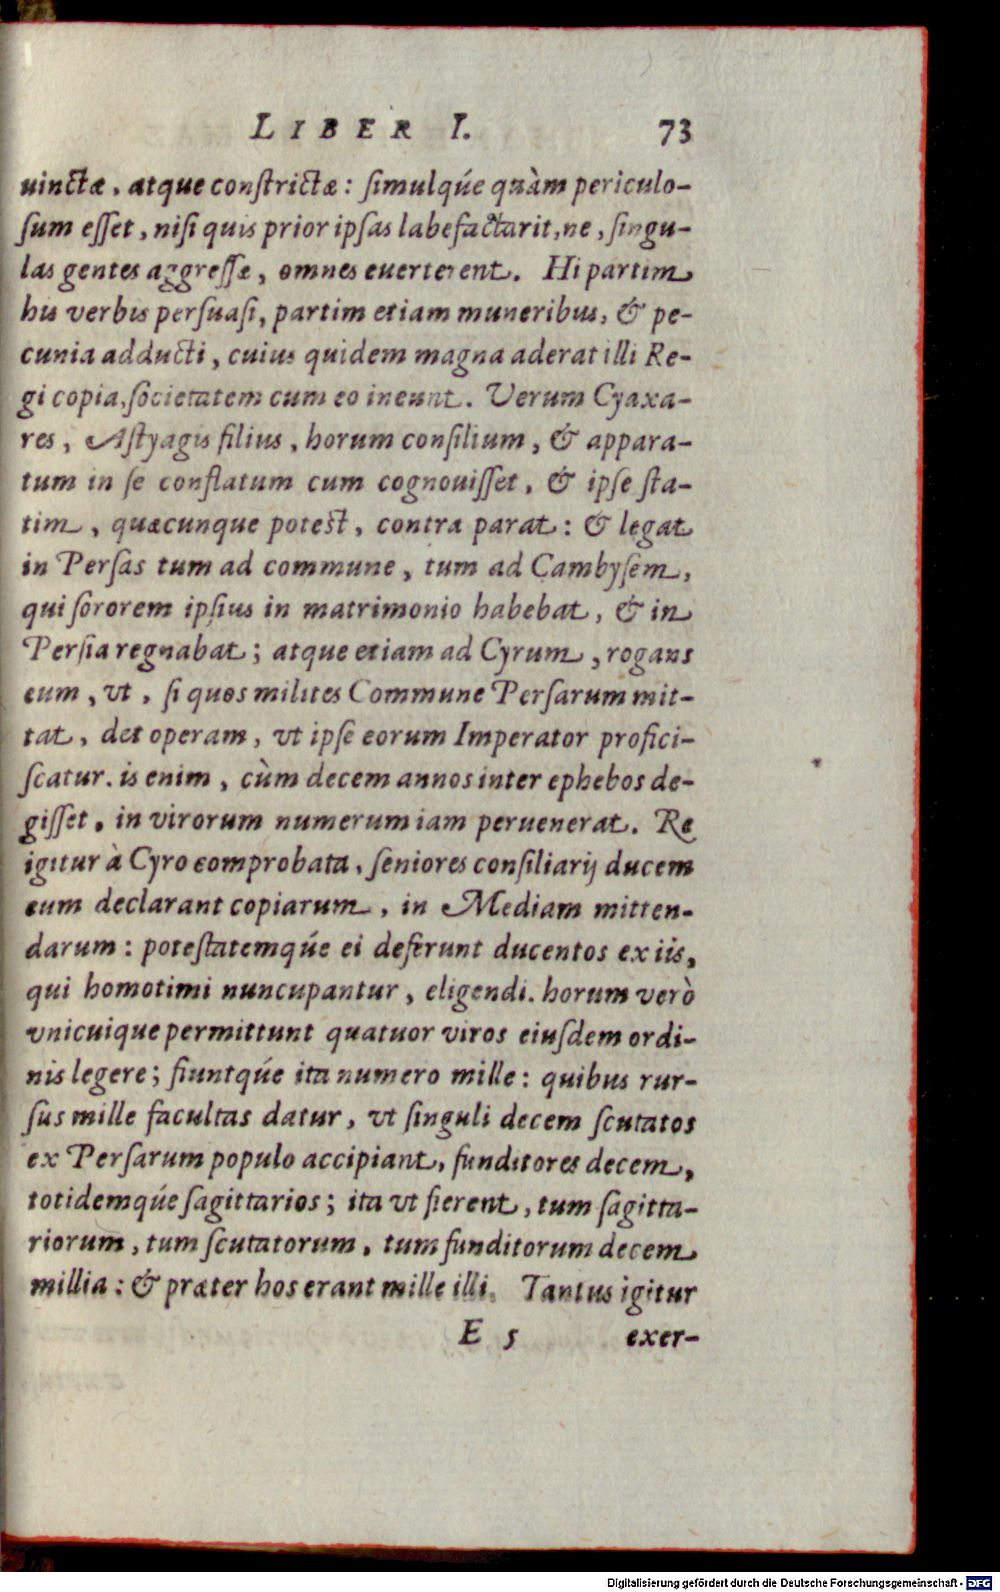 LIBER I. 73
uinctæ, atque constrictæ: simulqúe quàm periculo-
sum esset, nisi quis prior ipsas labefactarit, ne, singu-
las gentes aggressæ, omnes euerterent. Hi partim
his verbis persuasi, partim etiam muneribus, & pe-
cunia adducti, cuius quidem magna aderat illi Re-
gi copia, societatem cum eo ineunt. Verum Cyaxa-
res, Astyagis filius, horum consilium, & appara-
tum in se conflatum cum cognouisset, & ipse sta-
tim, quæcunque potest, contra parat: & legat
in Persas tum ad commune, tum ad Cambysem,
qui sororem ipsius in matrimonio habebat, & in
Persia regnabat; atque etiam ad Cyrum, rogans
eum, vt, si quos milites Commune Persarum mit-
tat, det operam, vt ipse eorum Imperator profici-
scatur. is enim, cùm decem annos inter ephebos de-
gisset, in virorum numerum iam peruenerat. Re
igitur à Cyro comprobata, seniores consiliarij ducem
eum declarant copiarum, in Mediam mitten-
darum: potestatemqúe ei deferunt ducentos ex iis,
qui homotimi nuncupantur, eligendi. horum verò
vnicuique permittunt quatuor viros eiusdem ordi-
nis legere; fiuntqúe ita numero mille: quibus rur-
sus mille facultas datur, vt singuli decem scutatos
ex Persarum populo accipiant, funditores decem,
totidemqúe sagittarios; ita vt fierent, tum sagitta-
riorum, tum scutatorum, tum funditorum decem
millia: & præter hos erant mille illi. Tantus igitur
E 5 exer-
Digitalisierung gefördert durch die Deutsche Forschungsgemeinschaft - DFG